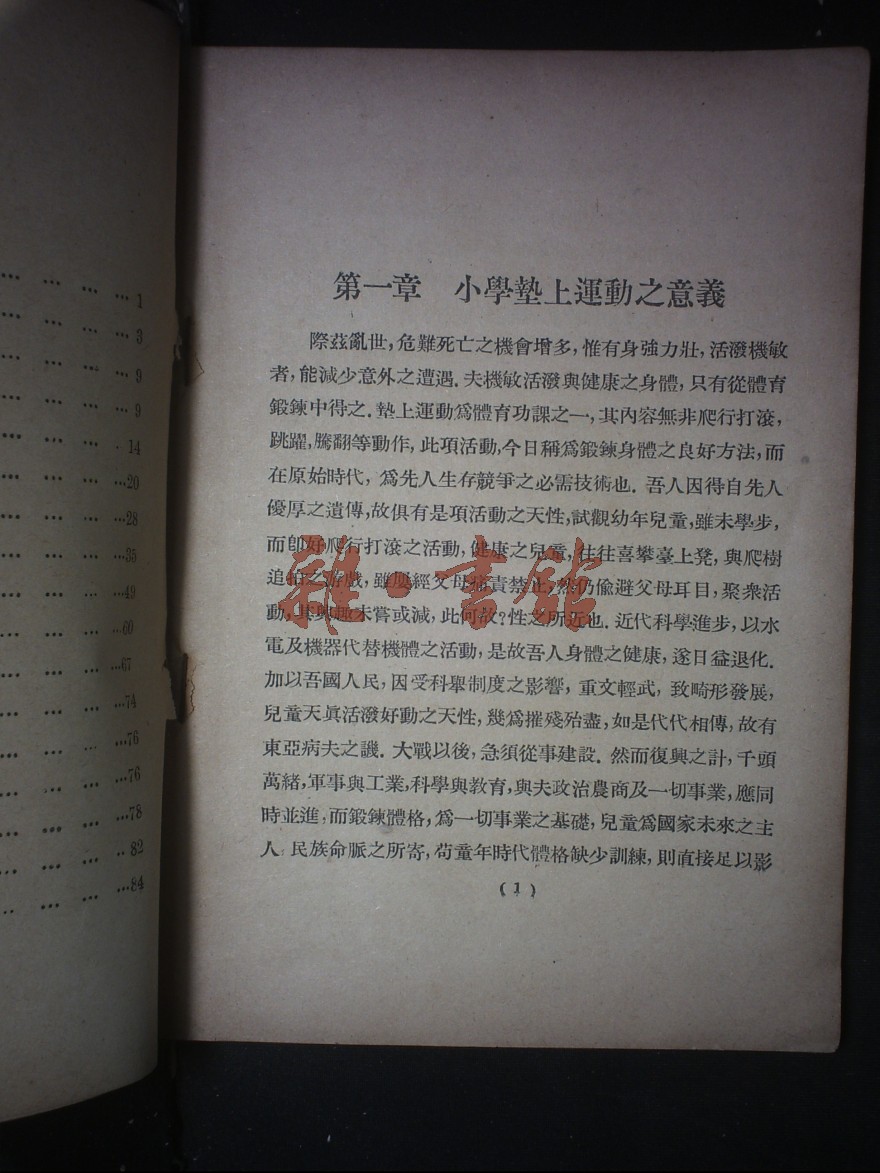 … … … 1
… … … 3
… … … 9
… … … 9
… … · 14
… … …20
… … …28
… … …35
… … …49
… … …60
… … …67
… … …74
… … …76
… … …76
… … …78
… … ‥82
… … …84
第一章 小學墊上運動之意義
際茲亂世,危難死亡之機會增多,惟有身強力壯,活潑機敏
者,能減少意外之遭遇.夫機敏活潑與健康之身體,只有從體育
鍛鍊中得之.墊上運動爲體育功課之一,其內容無非爬行打滾,
跳躍,騰翻等動作,此項活動,今日稱爲鍛鍊身體之良好方法,而
在原始時代,爲先人生存競爭之必需技術也.吾人因得自先人
優厚之遺傳,故俱有是項活動之天性,試觀幼年兒童,雖未學步,
而卽好爬行打滾之活動,健康之兒童,往往喜攀臺上凳,與爬樹
追拍之游戲,雖屢經父母痛責禁止,然仍偸避父母耳目,聚衆活
動,其興趣未嘗或減,此何故?性之所近也.近代科學進步,以水
電及機器代替機體之活動,是故吾人身體之健康,遂日益退化.
加以吾國人民,因受科舉制度之影響,重文輕武,致畸形發展,
兒童天眞活潑好動之天性,幾爲摧殘殆盡,如是代代相傳,故有
東亞病夫之譏.大戰以後,急須從事建設.然而復興之計,千頭
萬緖,軍事與工業,科學與教育,與夫政治農商及一切事業,應同
時並進,而鍛鍊體格,爲一切事業之基礎,兒童爲國家未來之主
人.民族命脈之所寄,苟童年時代體格缺少訓練,則直接足以影
(1)
雜·書館